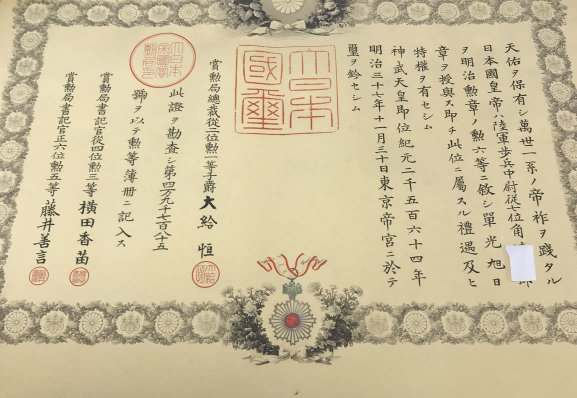 天佑ヲ保有シ萬世一系ノ帝祚ヲ踐タル
日本國皇帝ハ陸軍歩兵中尉從七位角
ヲ明治勲章ノ勲六等ニ敍シ單光旭日
章ヲ授與ス即チ此位ニ屬スル禮遇及ヒ
特權ヲ有セシム
神武天皇即位紀元二千五百六十四年
明治三十七年十一月三十日東京帝宮ニ於テ
璽ヲ鈐セシム
大日本
國璽
賞勲局總裁從二位勲一等子爵大給恒
此證ヲ勘査シ第四万九千七百八十五
號ヲ以テ勲等簿册ニ記入ス
賞勲局書記官從四位勲三等横田香苗
賞勲局書記官正六位勲五等藤井善言